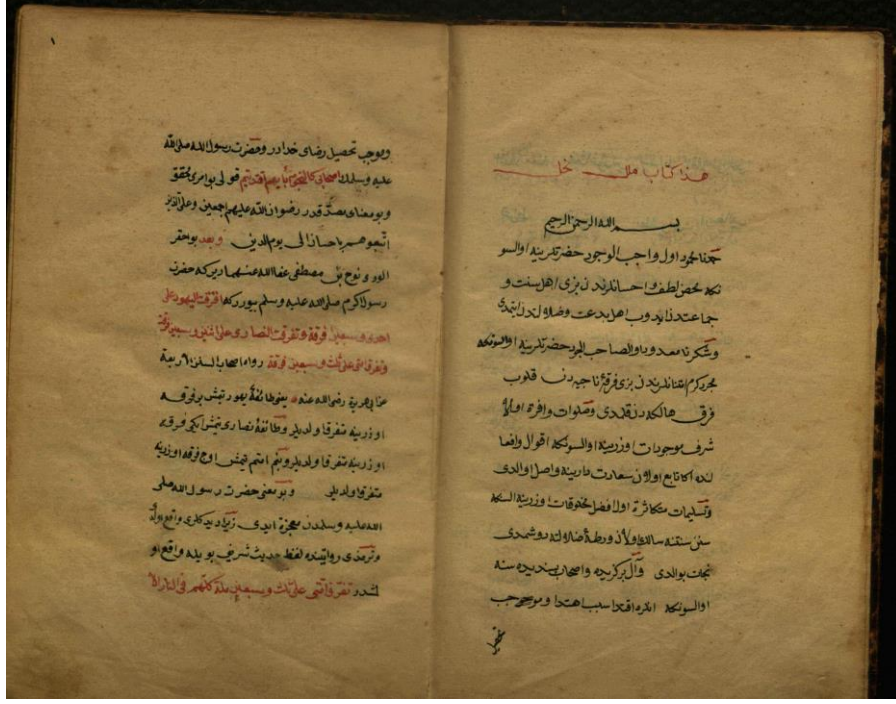 هذا كتاب ملل نحل
بسم الله الرحمن الرحيم
حمد نامحدود اول واجب الوجود حضرتلرينه اولسو
نكه محض لطف و احسانلرندن بزى اهل سنت و
جماعتدن ايدوب اهل بدعت وضلالتدن ايتمدى
وشكر نامعدود اول صاحب الجود حضرتلرينه اولسونكه
مجرد كرم امتنانلرندن بزى فرقۀ ناجيه دن قلوب
فرق هالكه دن قلمدى وصلوات وافره اول
شرف موجودات اوزرينه اولسونكه اقوال وافعا
لنده اكا تابع اولان سعادت دارينه واصل اولدى
وتسليمات متكاثره اول افضل مخلوقات اوزرينه اولسونكه
سنن سنينه سالك اولان ورطۀ ضلالته دوشمدى
نجات بولدى وآل بركزيده واصحاب پسنديده سنه
اولسونكه انلره اقتدا سبب اهتدا وموجب
تحصيل
وموجب تحصيل رضاى خدادر وحضرت رسول الله صلى الله
عليه وسلمك اصحابى كالنجوم بايهم اقتديتم قولى بو امرى محقق
وبو معناى مصدقدر رضوان الله عليهم اجمعين وعلى الذين
اتبعوهم باحسان الى يوم الدين وبعد بو احقر
الورى نوح بن مصطفى عفا الله عنهما ديركه حضرت
رسول اكرم صلى الله عليه وسلم بيورركه افترقت اليهود على
احدى وسبعين فرقة وتفرقت النصارى على اثنين وسبعين فرقة
وتفرق امتى على ثلث وسبعين فرقة رواه اصحاب السنن الاربعة
عن ابى هريرة رضى الله عنه يعنى طائفۀ يهود يتمش بر فرقه
اوزرينه متفرق اولديلر وطائفۀ نصارى يتمش ايكى فرقه
اوزرينه متفرق اولديلر وبنم امتم يتمش اوچ فرقه اوزرينه
متفرق اولديلر وبو معنى حضرت رسول الله صلى
الله عليه وسلمدن معجزه ايدى زيرا ديدكلرى واقع اولدى
وترمذى روايتنده لفظ حديث شريف بويله واقع او
لمشدر تفرق امتى على ثلث وسبعين ملة كلهم فى النار الا